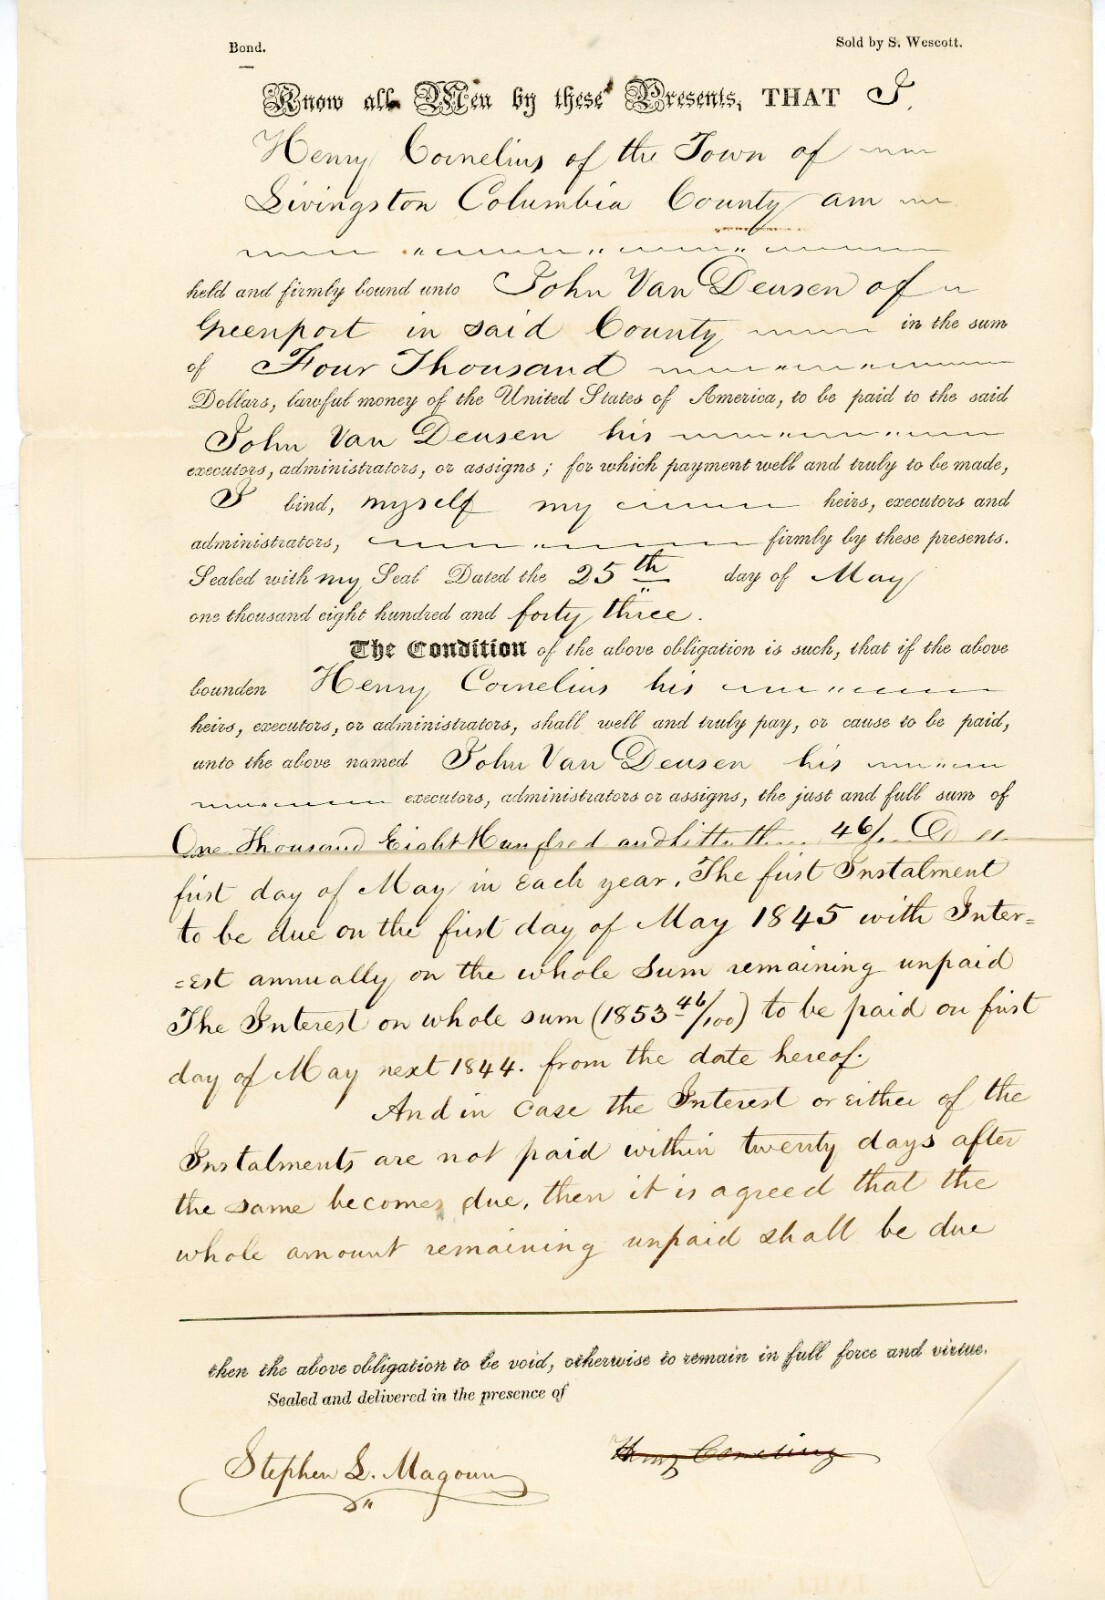 Bond.
Sold by S. Wescott.
Know all Men by these Presents, THAT I,
Henry Cornelius of the Town of
Livingston Columbia County am
held and firmly bound unto John Van Deusen of
Greenport in said County in the sum
of Four Thousand
Dollars, lawful money of the United States of America, to be paid to the said
John Van Deusen his
executors, administrators, or assigns; for which payment well and truly to be made,
I bind, myself my heirs, executors and
administrators, firmly by these presents.
Sealed with my Seal Dated the 25th day of May
one thousand eight hundred and forty three.
The Condition of the above obligation is such, that if the above
bounden Henry Cornelius his
heirs, executors, or administrators, shall well and truly pay, or cause to be paid,
unto the above named John Van Deusen his
executors, administrators or assigns, the just and full sum of
One Thousand Eight Hundred and 46/
first day of May in Each year. The first Instalment
to be due on the first day of May 1845 with Inter=
=est annually on the whole Sum remaining unpaid
The Interest on whole sum (1853 46/100) to be paid on first
day of May next 1844. from the date hereof.
And in case the Interest or either of the
Instalments are not paid within twenty days after
the same becomes due, then it is agreed that the
whole amount remaining unpaid shall be due
then the above obligation to be void, otherwise to remain in full force and virtue.
Sealed and delivered in the presence of
Stephen L. Magoun
Henry Cornelius